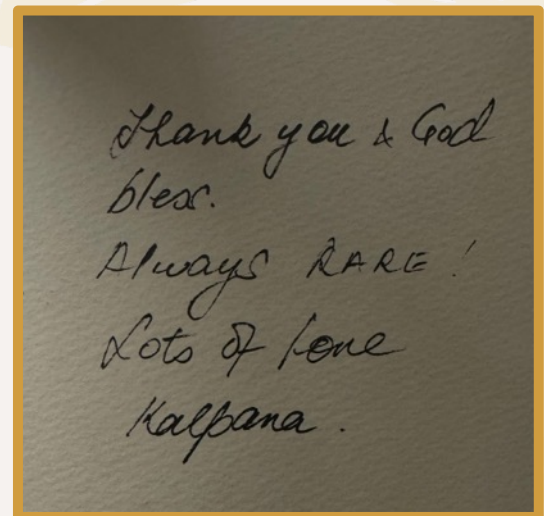 Thank you & God
bless.
Always RARE!
Lots of love
Kalpana.